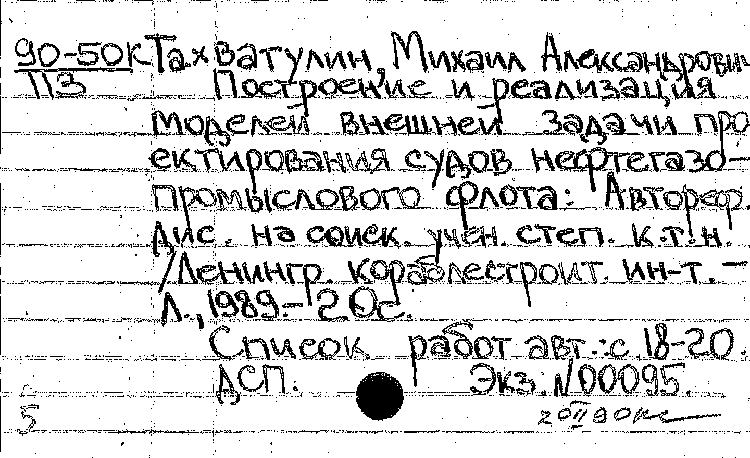 90-50К Тахватулин, Михаил Александрович
113 Построение и реализация
моделей внешней задачи про
ектирования судов нефтегазо-
промыслового флота: Автореф.
Дис. на соиск. учен. степ. к.т.н.
/Ленингр. кораблестроит. ин-т. -
Л., 1989. - 20с.
Список работ авт.: с. 18-20.
ДСП. Экз. N00095.
5